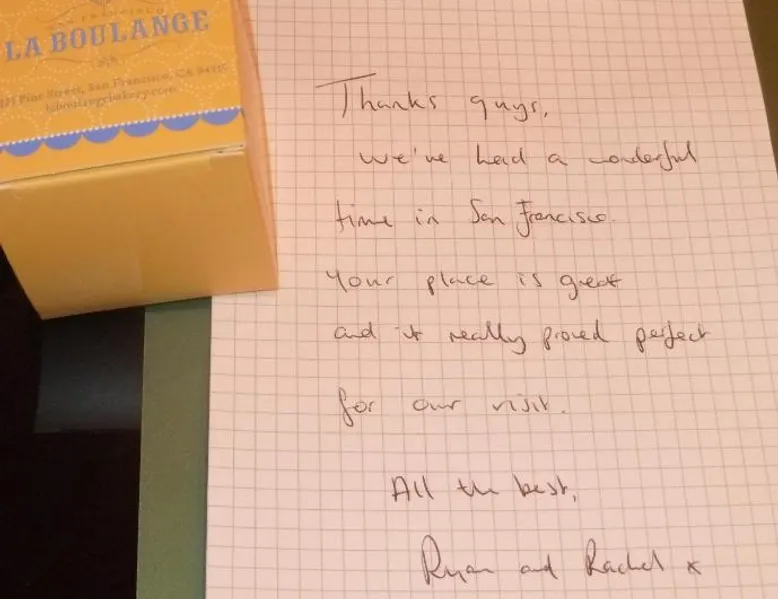 LA BOULANGE
Pine Street, San Francisco, CA
laboulangebakery.com
Thanks guys,
we've had a wonderful
time in San Francisco.
Your place is great
and it really proved perfect
for our visit.
All the best,
Ryan and Rachel x